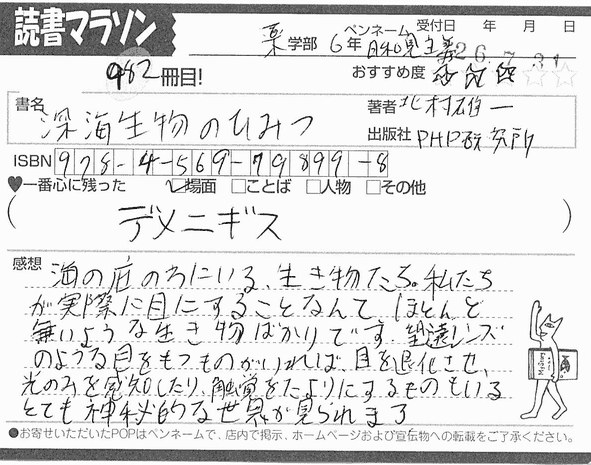 読書マラソン
薬学部 6年 ペンネーム 日和見主義 受付日 年 月 日
26.7.31
982冊目!
おすすめ度
書名 深海生物のひみつ
著者 北村雄一
出版社 PHP研究所
ISBN 978-4-569-79899-8
一番心に残った 場面 ことば 人物 その他
(デメニギス)
感想
海の底の方にいる、生き物たち。私たち
が実際に目にすることなんて、ほとんど
無いような生き物ばかりです。望遠レンズ
のような目をもつものがいれば、目を退化させ、
光のみを感知したり、触覚をたよりにするものもいる
とても神秘的な世界が見られます
●お寄せいただいたPOPはペンネームで、店内で掲示、ホームページおよび宣伝物への転載をご了承ください。